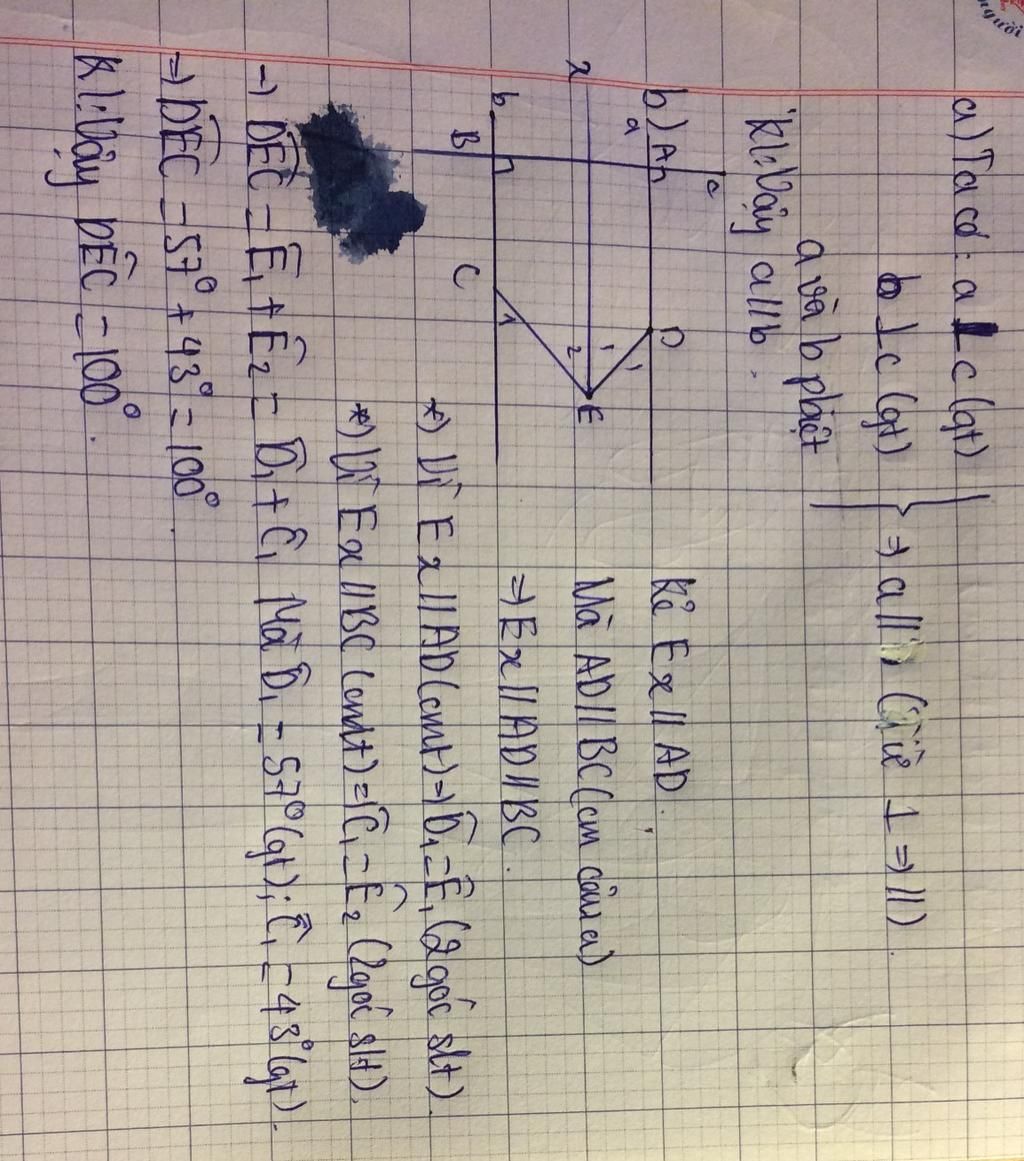 người
a) Ta có: a ⊥ c (gt)
b ⊥ c (gt) } ⇒ a // b (Từ ⊥ ⇒ //).
a và b pbiệt
kl: Vậy a // b.
b)
c
a A D
x E
1 1 2
b B C 1
Kẻ Ex // AD.
Mà AD // BC (cm câu a)
⇒ Ex // AD // BC.
*) Vì Ex // AD (cmt) ⇒ D̂₁ = Ê₁ (2 góc slt).
*) Vì Ex // BC (cmt) ⇒ Ĉ₁ = Ê₂ (2 góc slt).
→ DÊC = Ê₁ + Ê₂ = D̂₁ + Ĉ₁ Mà D̂₁ = 57° (gt); Ĉ₁ = 43° (gt).
⇒ DÊC = 57° + 43° = 100°.
kl: Vậy DÊC = 100°.